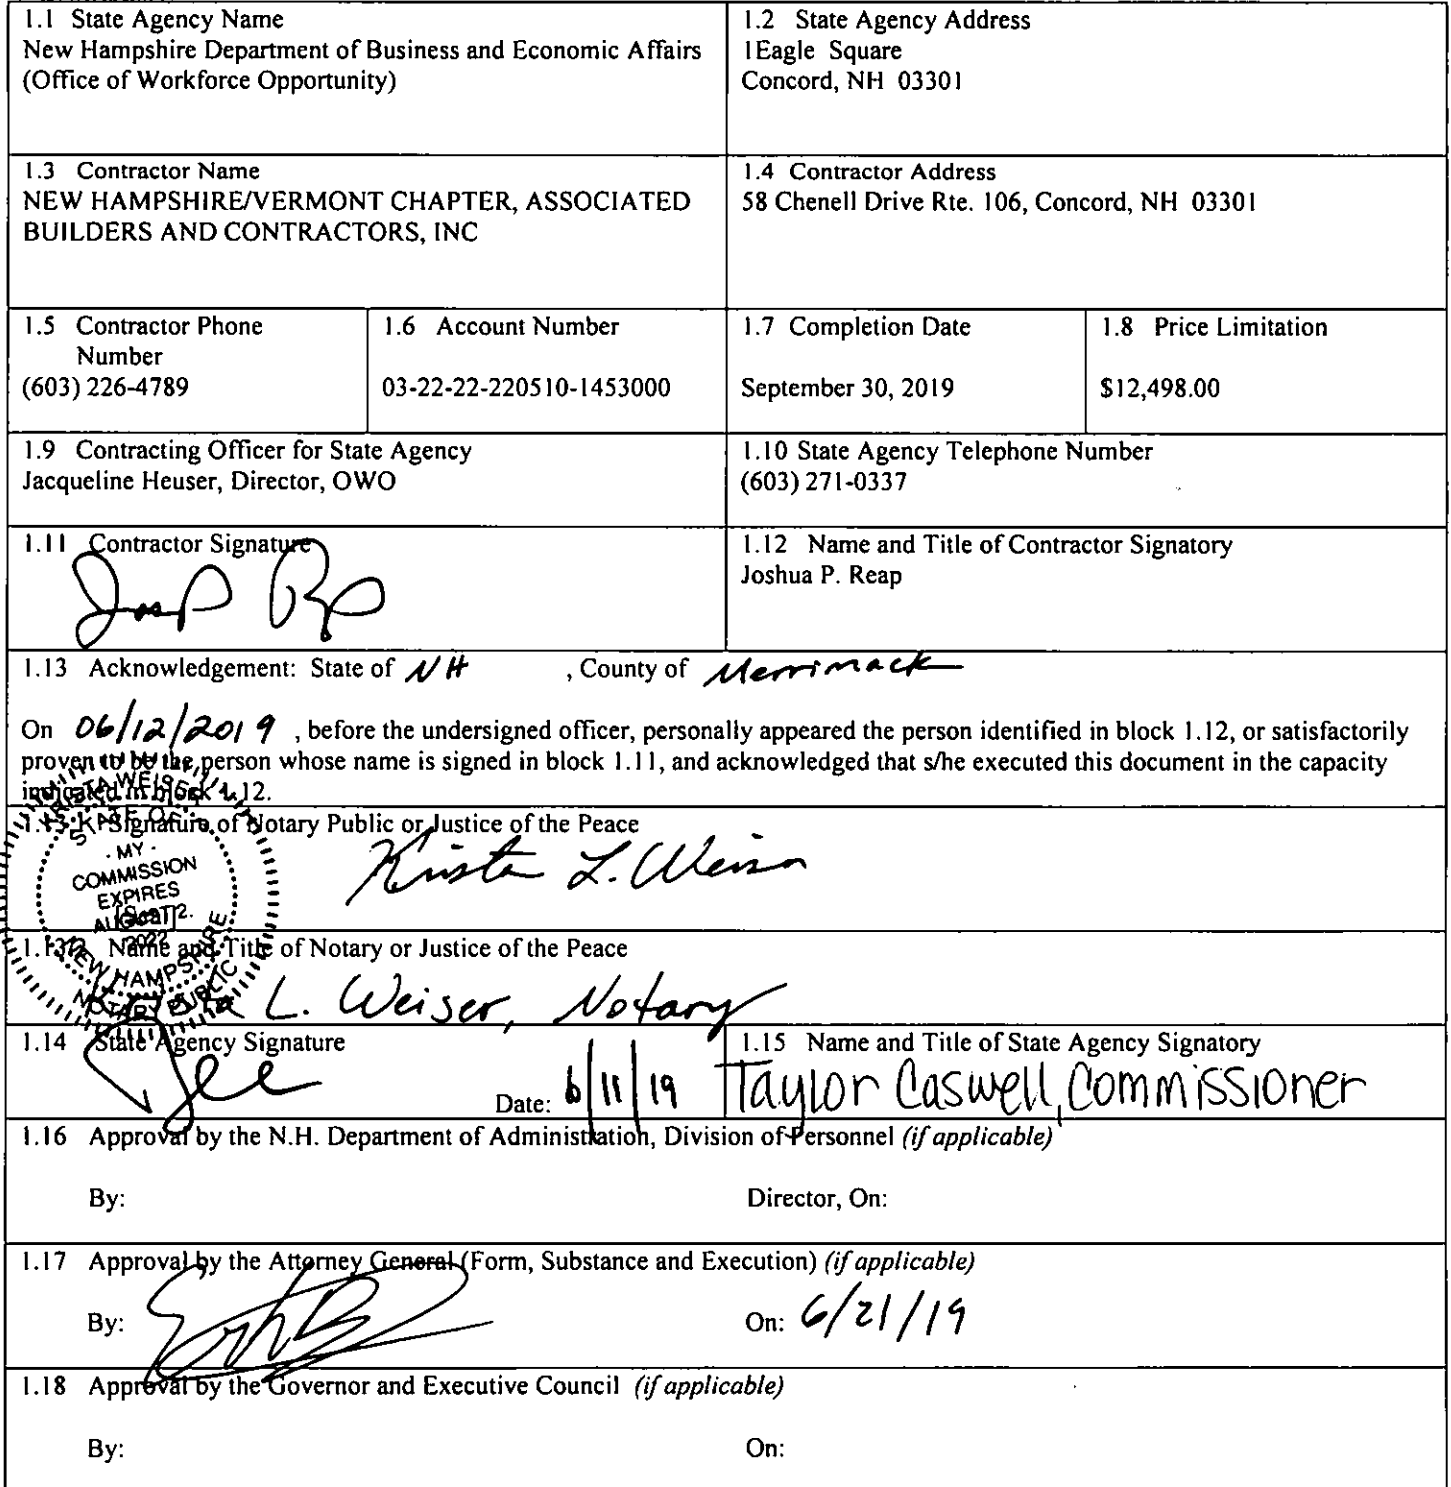 1.1 State Agency Name
New Hampshire Department of Business and Economic Affairs
(Office of Workforce Opportunity)
1.2 State Agency Address
1Eagle Square
Concord, NH 03301
1.3 Contractor Name
NEW HAMPSHIRE/VERMONT CHAPTER, ASSOCIATED
BUILDERS AND CONTRACTORS, INC
1.4 Contractor Address
58 Chenell Drive Rte. 106, Concord, NH 03301
1.5 Contractor Phone
Number
(603) 226-4789
1.6 Account Number
03-22-22-220510-1453000
1.7 Completion Date
September 30, 2019
1.8 Price Limitation
$12,498.00
1.9 Contracting Officer for State Agency
Jacqueline Heuser, Director, OWO
1.10 State Agency Telephone Number
(603) 271-0337
1.11 Contractor Signature
1.12 Name and Title of Contractor Signatory
Joshua P. Reap
1.13 Acknowledgement: State of NH , County of Merrimack
On 06/12/2019 , before the undersigned officer, personally appeared the person identified in block 1.12, or satisfactorily
proven to be the person whose name is signed in block 1.11, and acknowledged that s/he executed this document in the capacity
indicated in block 1.12.
1.13.1 Signature of Notary Public or Justice of the Peace
Krista L. Weiser
KRISTA WEISER
STATE OF
MY
COMMISSION
EXPIRES
AUGUST 2.
2022
NEW HAMPSHIRE
NOTARY PUBLIC
[Seal]
1.13.2 Name and Title of Notary or Justice of the Peace
L. Weiser, Notary
1.14 State Agency Signature
Date: 6/11/19
1.15 Name and Title of State Agency Signatory
Taylor Caswell, Commissioner
1.16 Approval by the N.H. Department of Administration, Division of Personnel (if applicable)
By:
Director, On:
1.17 Approval by the Attorney General (Form, Substance and Execution) (if applicable)
By:
On: 6/21/19
1.18 Approval by the Governor and Executive Council (if applicable)
By:
On: